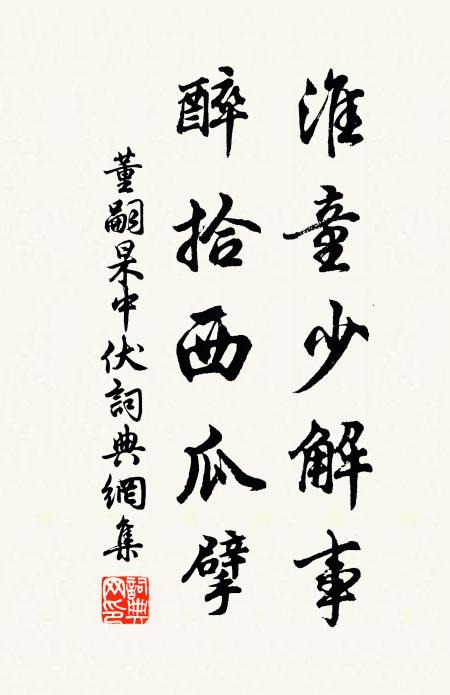 淮童少解事
醉拾西瓜擘
董嗣杲中伏詞典網集
詞典網印